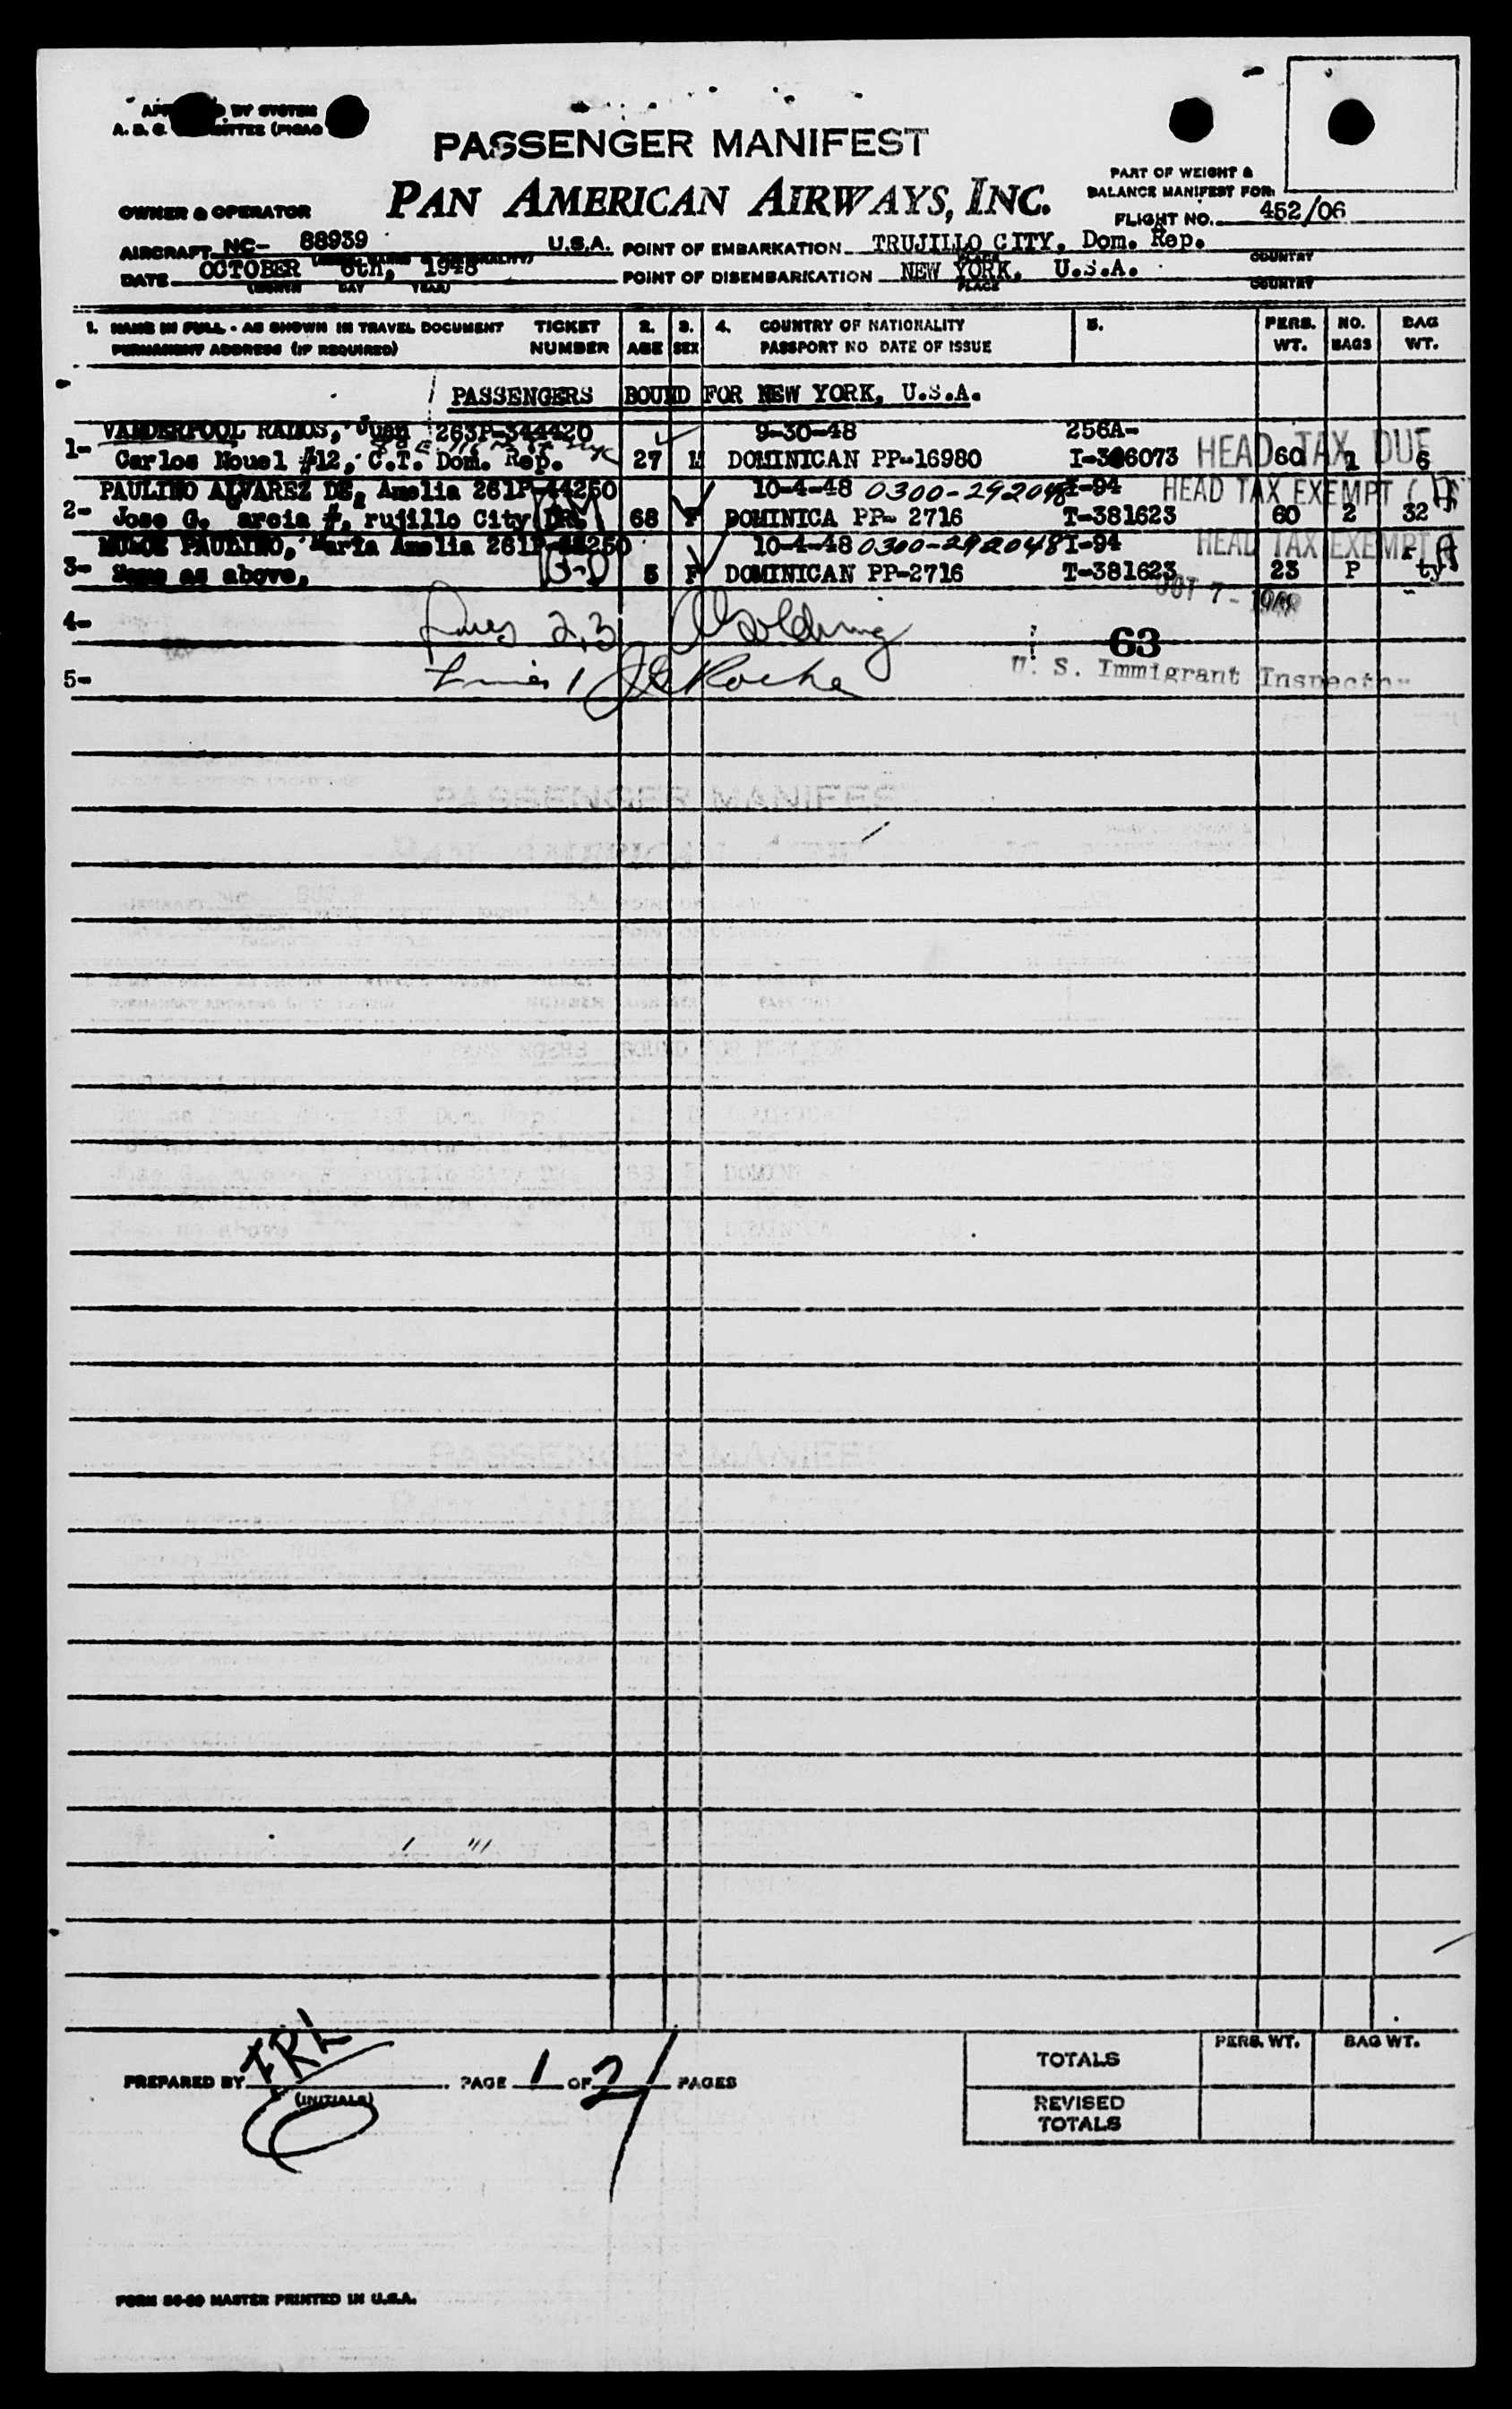 PASSENGER MANIFEST
PAN AMERICAN AIRWAYS, INC.
PART OF WEIGHT &
BALANCE MANIFEST FOR:
FLIGHT NO. 452/06
OWNER & OPERATOR
AIRCRAFT NC- 88939 U.S.A. POINT OF EMBARKATION TRUJILLO CITY, Dom. Rep.
PLACE COUNTRY
DATE OCTOBER 6th, 1948 POINT OF DISEMBARKATION NEW YORK, U.S.A.
(MONTH DAY YEAR) PLACE COUNTRY
1. NAME IN FULL - AS SHOWN IN TRAVEL DOCUMENT TICKET 2. 3. 4. COUNTRY OF NATIONALITY 5. PERS. NO. BAG
PERMANENT ADDRESS (IF REQUIRED) NUMBER AGE SEX PASSPORT NO DATE OF ISSUE WT. BAGS WT.
PASSENGERS BOUND FOR NEW YORK, U.S.A.
VANDERPOOL RAMOS, Juan 263P-344420 9-30-48 256A-
1- Carlos Nouel #12, C.T. Dom. Rep. 27 M DOMINICAN PP-16980 HEAD TAX DUE 60 1 6
PAULINO ALVAREZ DE, Amelia 261P-44250 10-4-48 0300-292048 I-94 HEAD TAX EXEMPT
2- Jose G. arcia #, rujillo City DR. 68 F DOMINICA PP- 2716 T-381623 60 2 32
PAULINO, Maria Amelia 261P-44250 10-4-48 0300-292048 I-94 HEAD TAX EXEMPT
3- Same as above, 5 F DOMINICAN PP-2716 T-381623 23 P ty
OCT 7- 1948
4- Lines 2,3 Golding
63
5- Lines 1 Roche U. S. Immigrant Inspector
PREPARED BY (INITIALS) PAGE 1 OF 2 PAGES
TOTALS PERS. WT. BAG WT.
REVISED
TOTALS
MASTER PRINTED IN U.S.A.